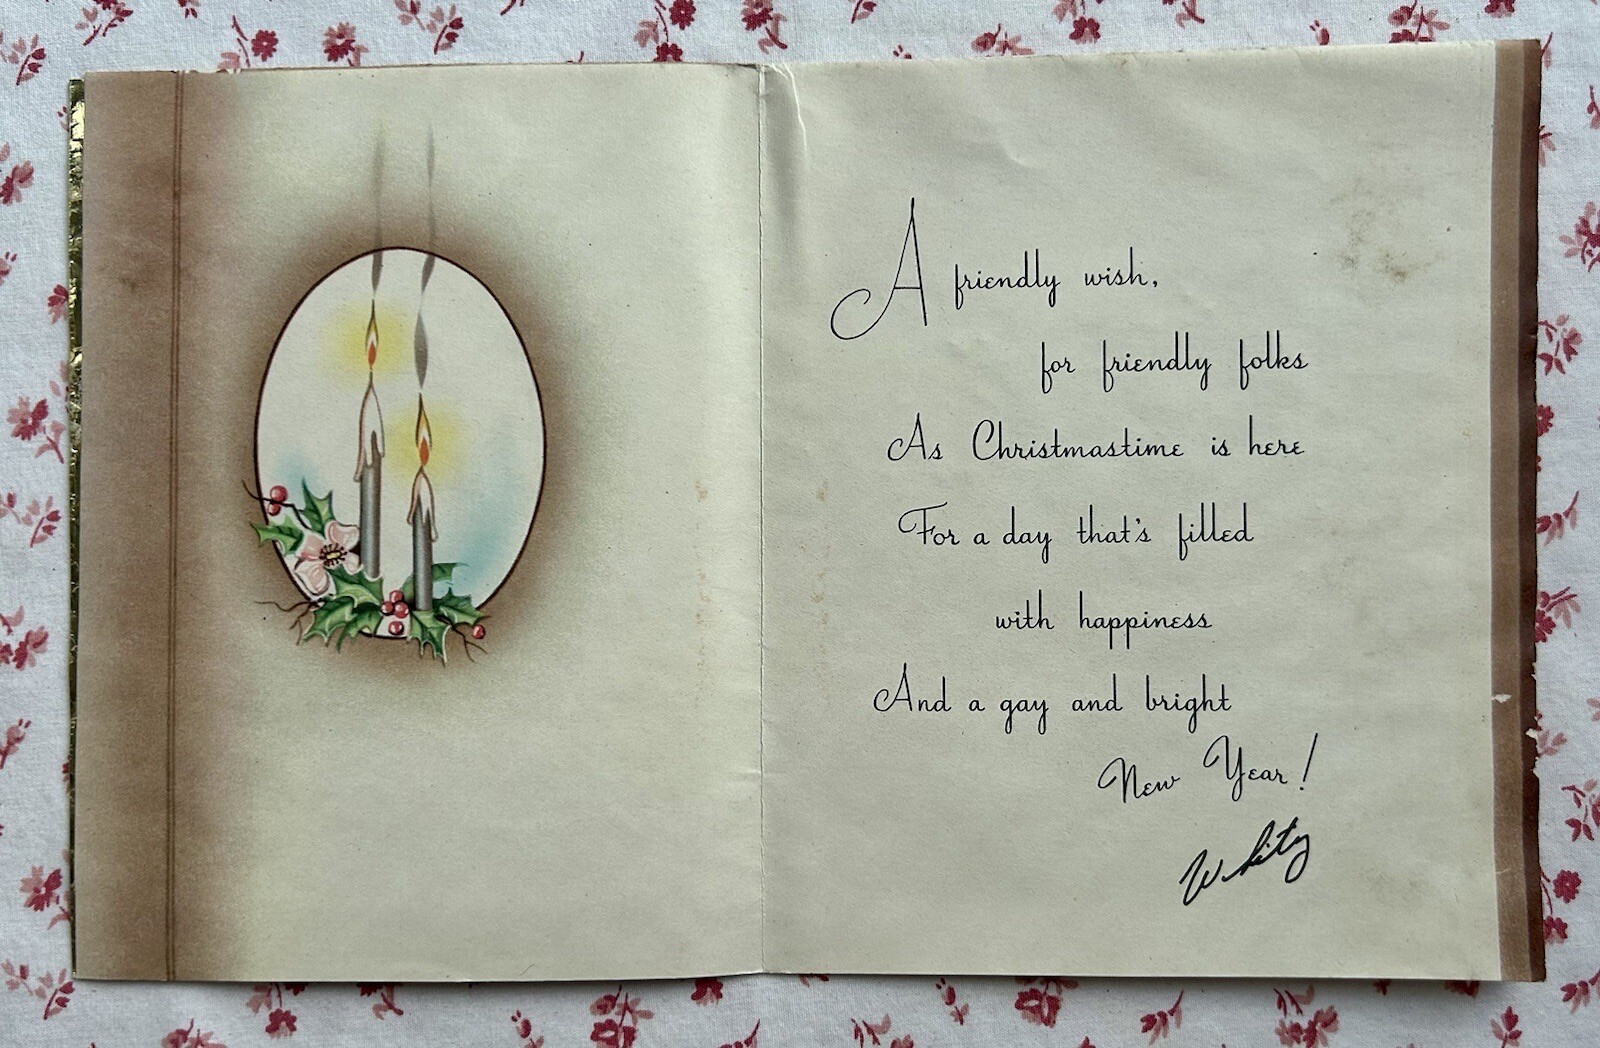 A friendly wish,
for friendly folks
As Christmastime is here
For a day that's filled
with happiness
And a gay and bright
New Year!
Whity